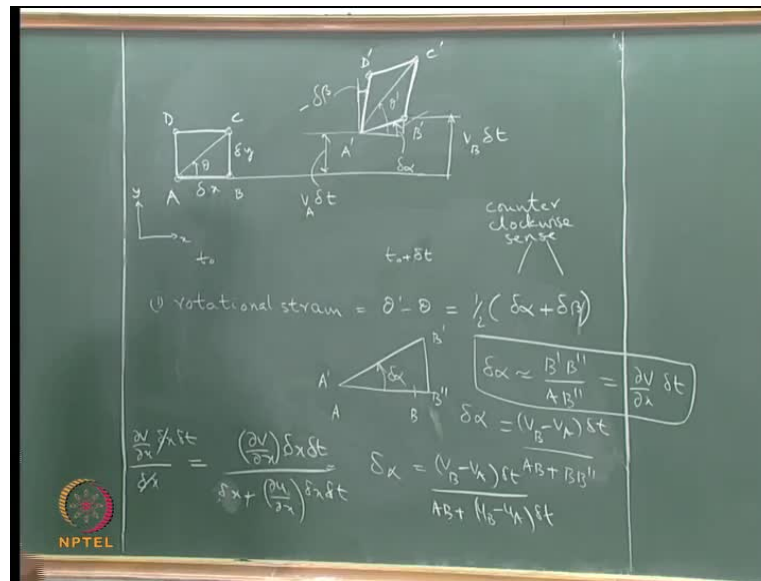 D' C'
-δβ
D C θ' B'
θ δy A' δα V_B δt
A δx B V_A δt
y x
t₀ t₀+δt
counter
clockwise
sense
(1) rotational strain = θ'-θ = ½(δα+δβ)
B'
A' δα
A B B''
δα ≃ B'B''/AB'' = ∂v/∂x δt
δα = (V_B-V_A)δt/(AB+BB'')
∂v/∂x δx δt/δx = (∂v/∂x)δx δt/(δx+(∂u/∂x)δx δt)
δα = (V_B-V_A)δt/(AB+(u_B-u_A)δt)
NPTEL